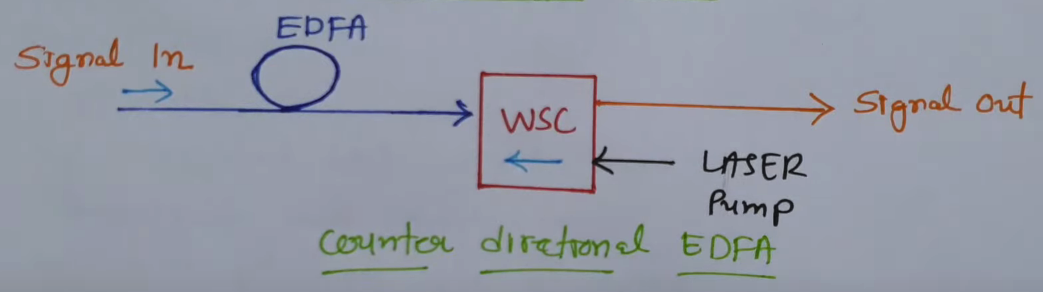 EDFA
Signal In
WSC
Signal out
LASER
Pump
counter dirational EDFA